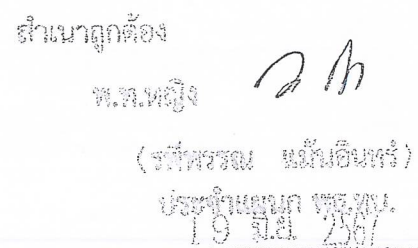 สำเนาถูกต้อง
พ.ต.หญิง
(รพีพรรณ แม้นอินทร์)
ประจำแผนก
19 มิ.ย. 2567